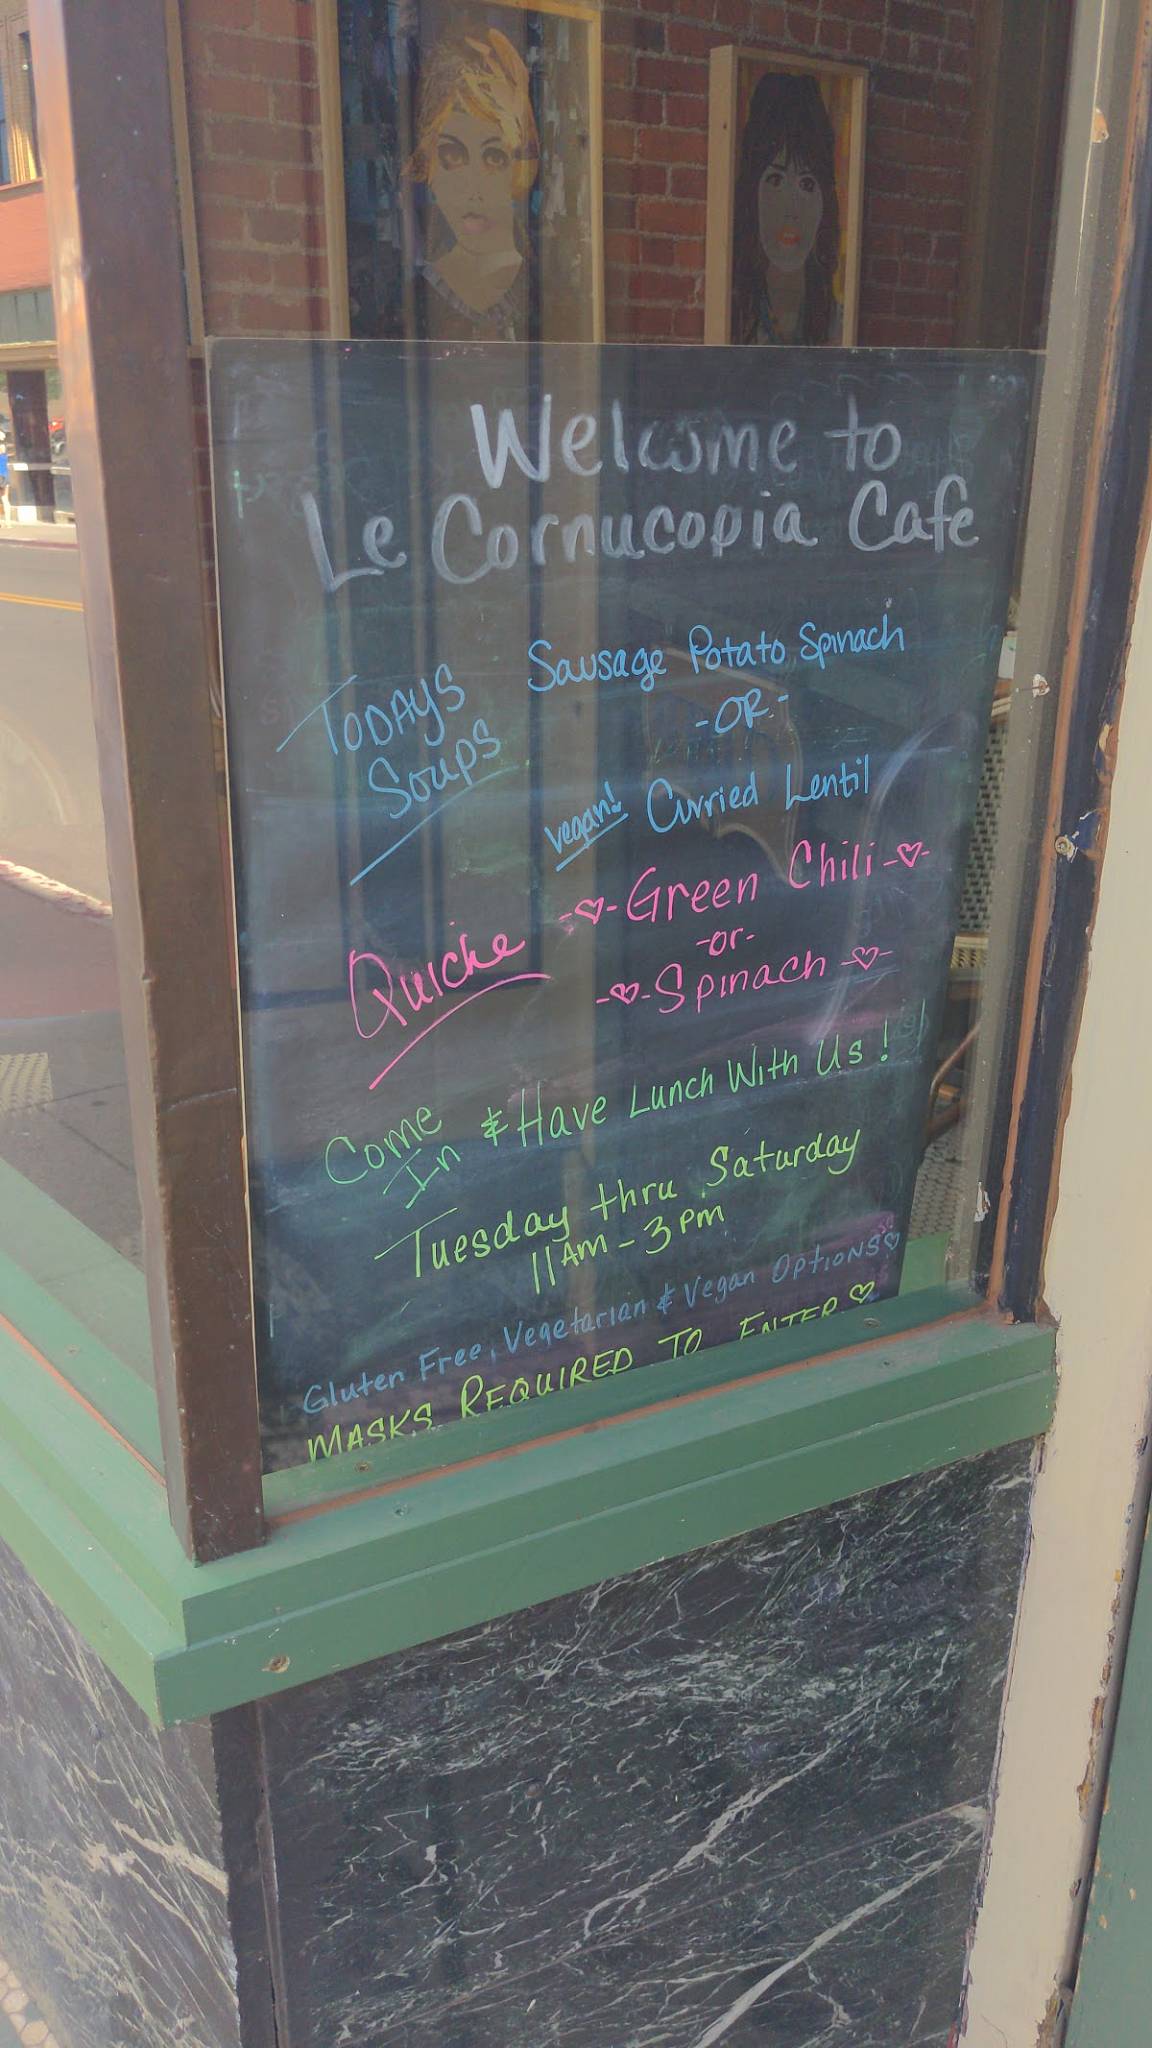 Welcome to
Le Cornucopia Cafe
TODAYS
SOUPS
Sausage Potato Spinach
-OR-
vegan! Curried Lentil
Quiche
-♡-Green Chili-♡-
-or-
-♡-Spinach-♡-
Come
In & Have Lunch With Us!
Tuesday thru Saturday
11AM-3PM
Gluten Free, Vegetarian & Vegan Options♡
MASKS REQUIRED TO ENTER♡